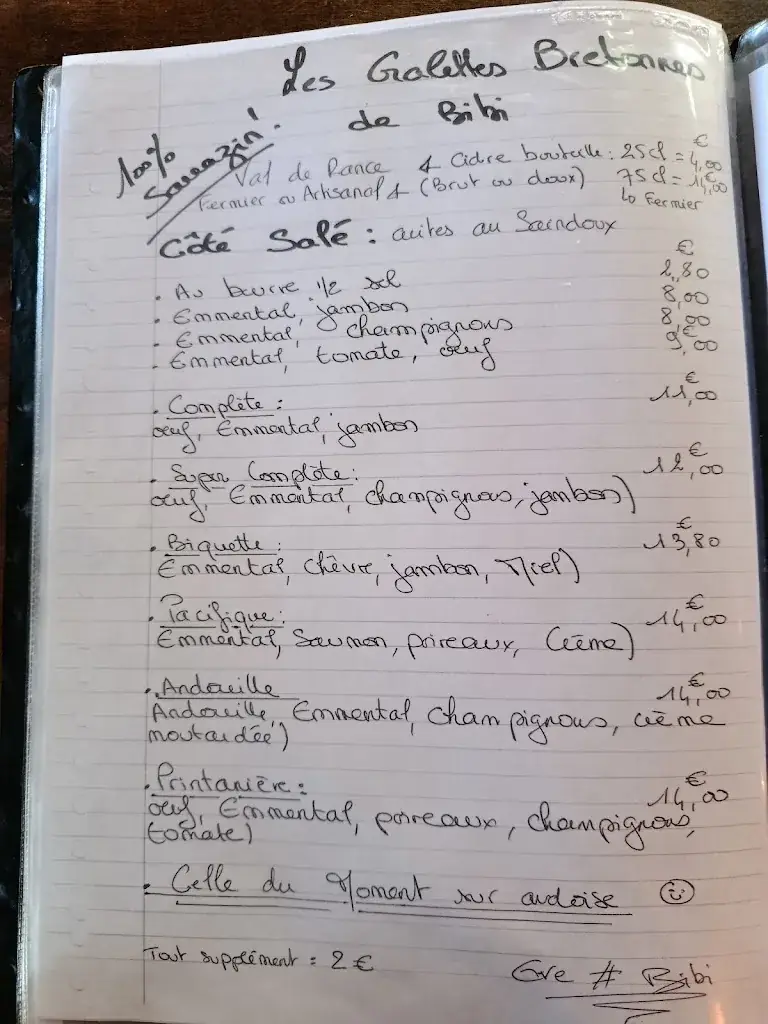 Les Galettes Bretonnes
de Bibi
100%
Sarrazin!
Val de Rance & Cidre bouteille : 25cl = 4,00 €
Fermier ou Artisanal & (Brut ou doux) 75cl = 14,00 €
↳ Fermier
Côté Salé : cuites au Saindoux
. Au beurre 1/2 sel 2,80 €
. Emmental, jambon 8,00
. Emmental, champignons 8,00
. Emmental, tomate, œuf 9,00 €
. Complète : 11,00 €
œuf, Emmental, jambon
. Super Complète : 12,00 €
œuf, Emmental, champignons, jambon)
. Biquette : 13,80 €
Emmental, Chèvre, jambon, Miel)
. Pacifique : 14,00 €
Emmental, Saumon, poireaux, Crème)
. Andouille 14,00 €
Andouille, Emmental, Champignons, crème
moutardée)
. Printanière : 14,00 €
œuf, Emmental, poireaux, champignons,
tomate)
. Celle du Moment sur ardoise
Tout supplément = 2 €
# Bibi